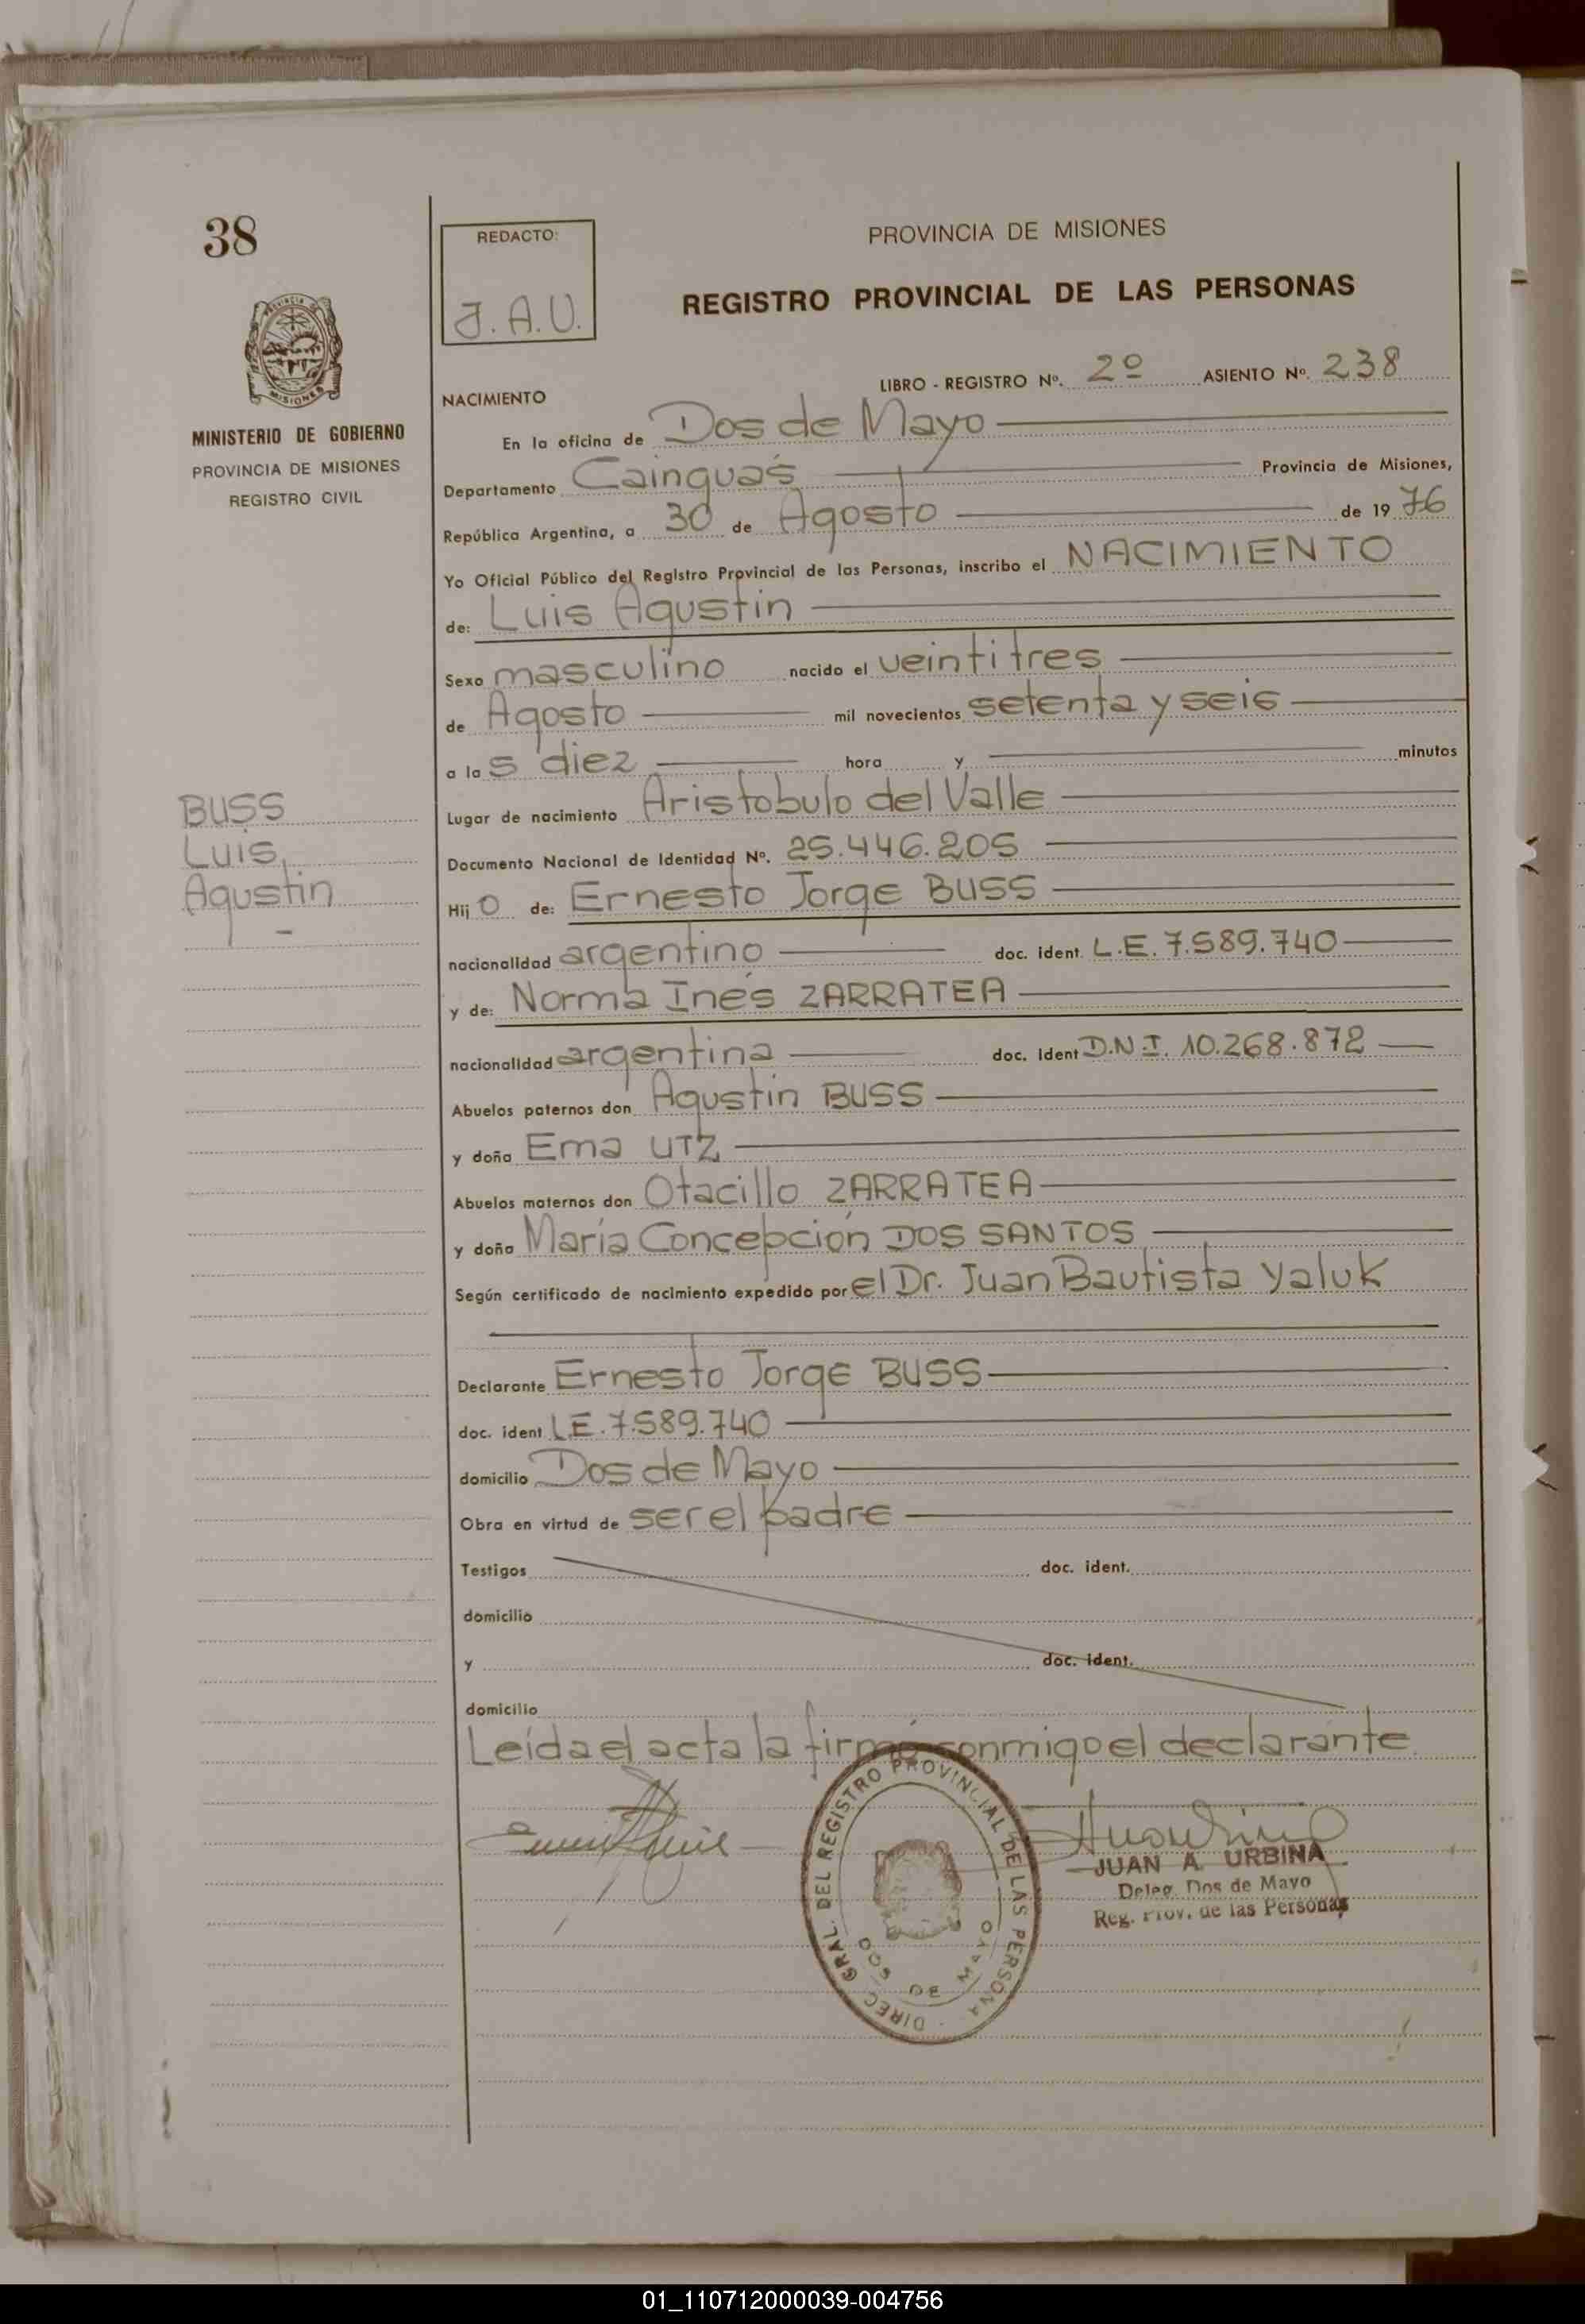 38
REDACTO:
J.A.U.
PROVINCIA DE MISIONES
REGISTRO PROVINCIAL DE LAS PERSONAS
PROVINCIA DE MISIONES
MINISTERIO DE GOBIERNO
PROVINCIA DE MISIONES
REGISTRO CIVIL
LIBRO - REGISTRO Nº. 2º ASIENTO Nº. 238
NACIMIENTO
En la oficina de Dos de Mayo
Departamento Cainguás Provincia de Misiones,
República Argentina, a 30 de Agosto de 1976
Yo Oficial Público del Registro Provincial de las Personas, inscribo el NACIMIENTO
de: Luis Agustin
Sexo masculino nacido el veintitres
de Agosto mil novecientos setenta y seis
a las diez hora y minutos
Lugar de nacimiento Aristobulo del Valle
Documento Nacional de Identidad Nº. 25.446.205
Hijo de: Ernesto Jorge BUSS
nacionalidad argentino doc. ident. L.E. 7.589.740
y de: Norma Inés ZARRATEA
nacionalidad argentina doc. ident D.N.I. 10.268.872
Abuelos paternos don Agustin BUSS
y doña Ema UTZ
Abuelos maternos don Otacillo ZARRATEA
y doña María Concepción DOS SANTOS
Según certificado de nacimiento expedido por el Dr. Juan Bautista Yaluk
Declarante Ernesto Jorge BUSS
doc. ident L.E. 7.589.740
domicilio Dos de Mayo
Obra en virtud de ser el padre
Testigos doc. ident.
domicilio
y doc. ident.
domicilio
Leída el acta la firma conmigo el declarante
BUSS
Luis,
Agustin
DIREC. GRAL. DEL REGISTRO PROVINCIAL DE LAS PERSONA
DOS DE MAYO
JUAN A. URBINA
Deleg. Dos de Mayo
Reg. Prov. de las Personas
01_110712000039-004756